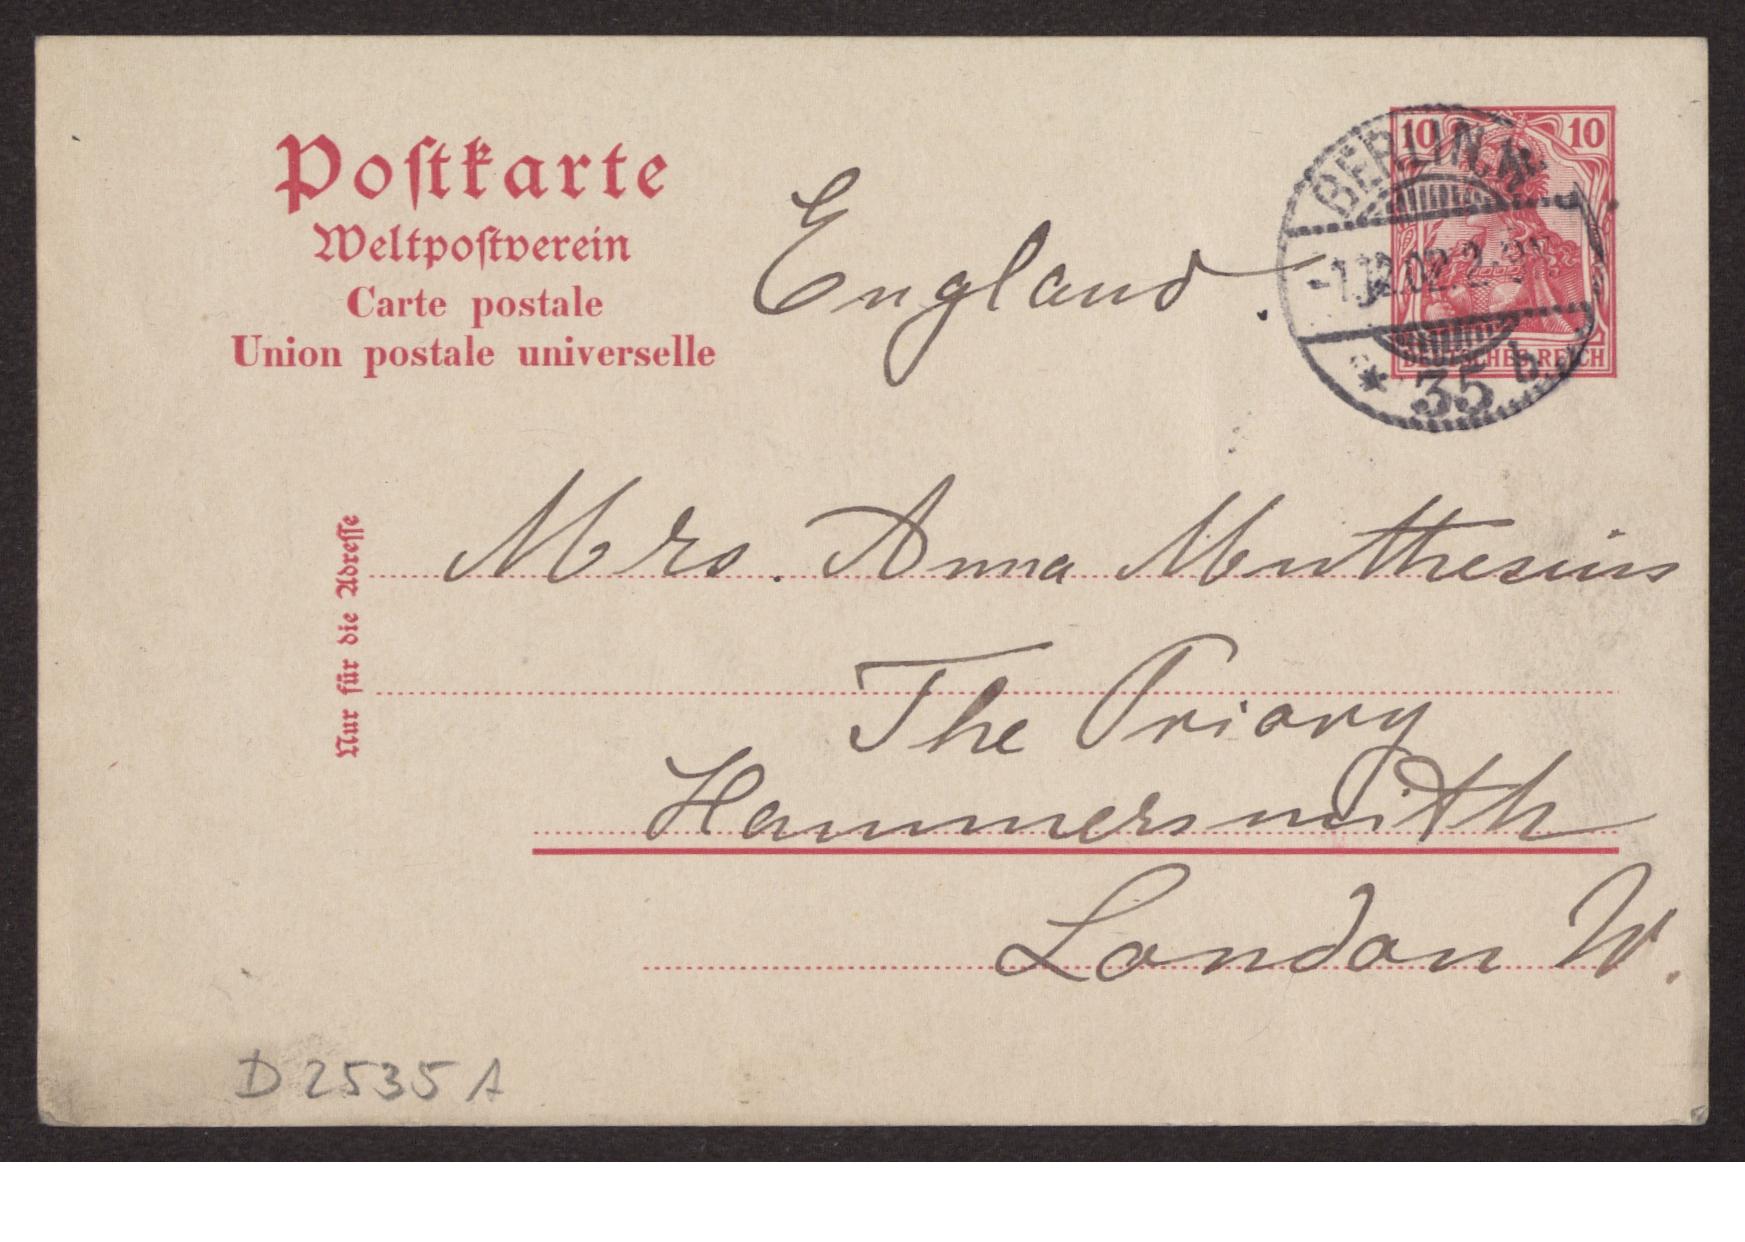 Poſtkarte
Weltpoſtverein
Carte postale
Union postale universelle
England.
10 10
DEUTSCHES REICH
BERLIN. W.
-1.12.02.2
* 35 b.
Nur für die Adreſſe
Mrs. Anna Muthesius
The Priory
Hammersmith
London W.
D 2535 A